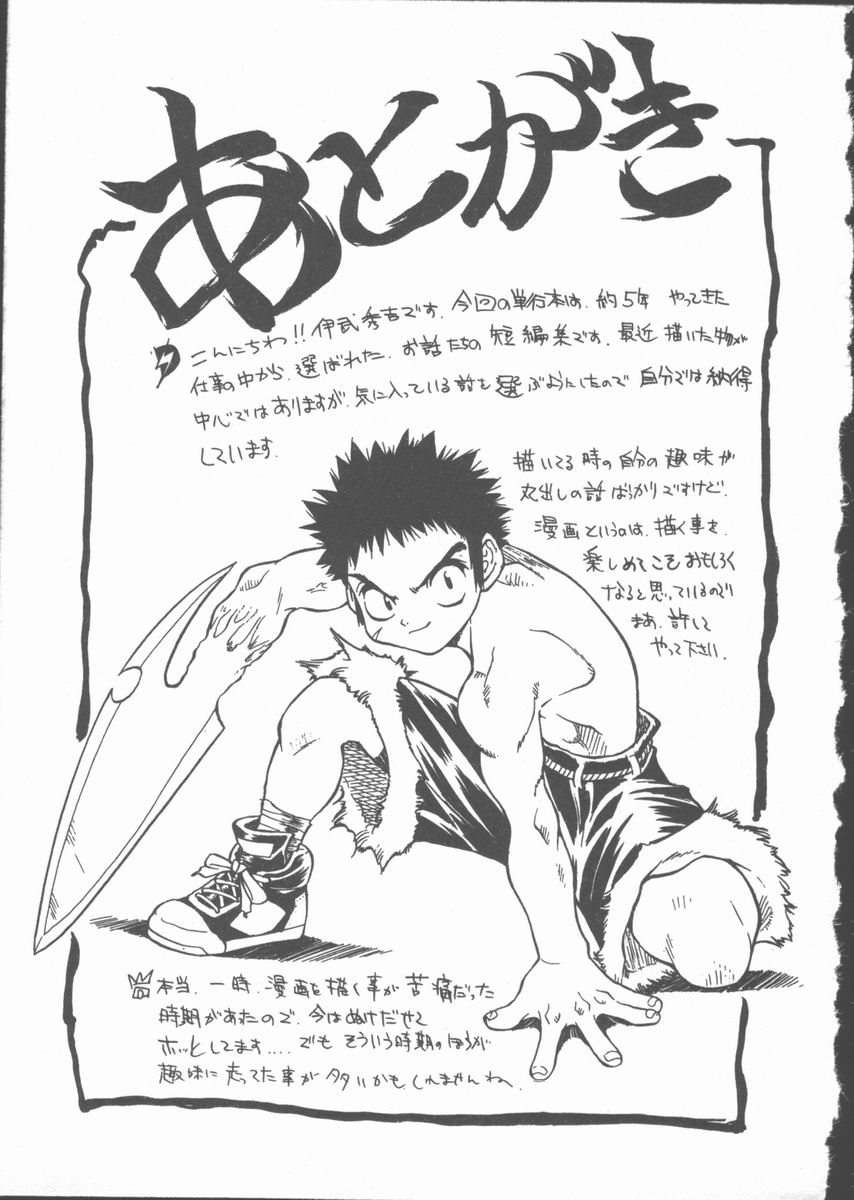 あとがき
こんにちわ!!伊武秀吉です.今回の単行本は.約5年 やってきた
仕事の中から.選ばれた.お話たちの短編集です.最近描いた物が
中心ではありますが.気に入っている話を選ぶようにしたので自分では納得
しています.
描いてる時の自分の趣味が
丸出しの話ばっかりですけど.
漫画というのは.描く事を.
楽しめてこそおもしろく
なると思っているので
まあ.許して
やって下さい.
本当.一時.漫画を描く事が苦痛だった
時期があたので.今はぬけだせて
ホッとしてます....でもそういう時期のほうが
趣味に走ってた事が多いかもしれませんね.